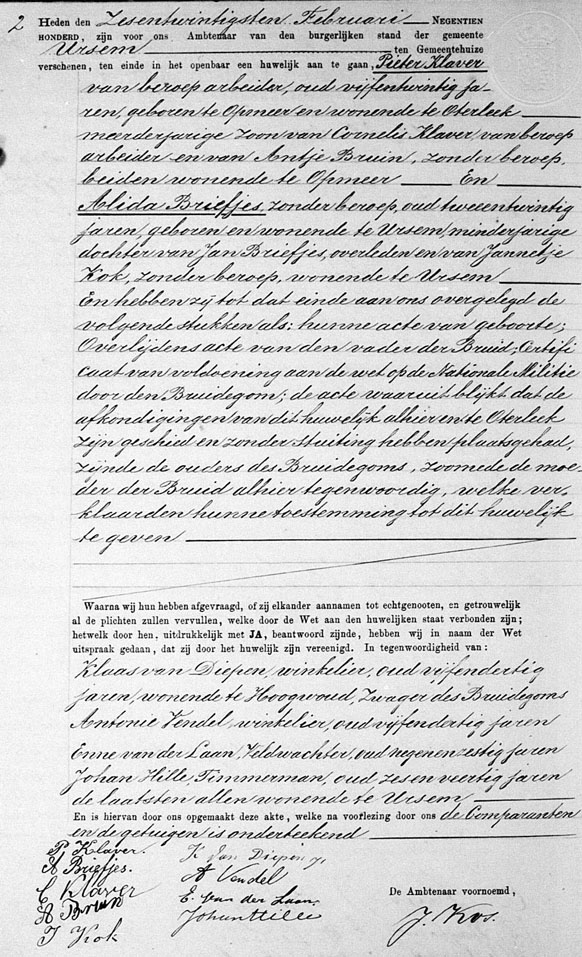 2
Heden den Zesentwintigsten Februari NEGENTIEN
HONDERD, zijn voor ons Ambtenaar van den burgerlijken stand der gemeente
Ursem ten Gemeentehuize
verschenen, ten einde in het openbaar een huwelijk aan te gaan, Pieter Klaver
van beroep arbeider, oud vijfentwintig ja-
ren, geboren te Opmeer en wonende te Oterleek
meerderjarige zoon van Cornelis Klaver, van beroep
arbeider en van Antje Bruin, zonder beroep,
beiden wonende te Opmeer En
Alida Briefjes, zonder beroep, oud tweeentwintig
jaren, geboren en wonende te Ursem, minderjarige
dochter van Jan Briefjes, overleden en van Jannetje
Kok, zonder beroep, wonende te Ursem
En hebben zij tot dat einde aan ons overgelegd de
volgende stukken als: hunne acte van geboorte;
Overlijdens acte van den vader der Bruid; Certifi
caat van voldoening aan de wet op de Nationale Militie
door den Bruidegom; de acte waaruit blijkt dat de
afkondigingen van dit huwelijk alhier en te Oterleek
zijn geschied en zonder stuiting hebben plaatsgehad,
zijnde de ouders des Bruidegoms, zoomede de moe-
der der Bruid alhier tegenwoordig, welke ver-
klaarden hunne toestemming tot dit huwelijk
te geven
Waarna wij hun hebben afgevraagd, of zij elkander aannamen tot echtgenooten, en getrouwelijk
al de plichten zullen vervullen, welke door de Wet aan den huwelijken staat verbonden zijn;
hetwelk door hen, uitdrukkelijk met JA, beantwoord zijnde, hebben wij in naam der Wet
uitspraak gedaan, dat zij door het huwelijk zijn vereenigd. In tegenwoordigheid van:
Klaas van Diepen, winkelier, oud vijfendertig
jaren, wonende te Hoogwoud, Zwager des Bruidegoms
Antonie Vendel, winkelier, oud vijfendertig jaren
Enne van der Laan, Veldwachter, oud negenenzestig jaren
Johan Hille, Timmerman, oud zesenveertig jaren
de laatsten allen wonende te Ursem
En is hiervan door ons opgemaakt deze akte, welke na voorlezing door ons de Comparanten
en de getuigen is onderteekend
P. Klaver.
A Briefjes.
C Klaver
A Bruin
J Kok
K Van Diepen
A Vendel
E. van der Laan.
Johan Hille
De Ambtenaar voornoemd,
J. Kos.